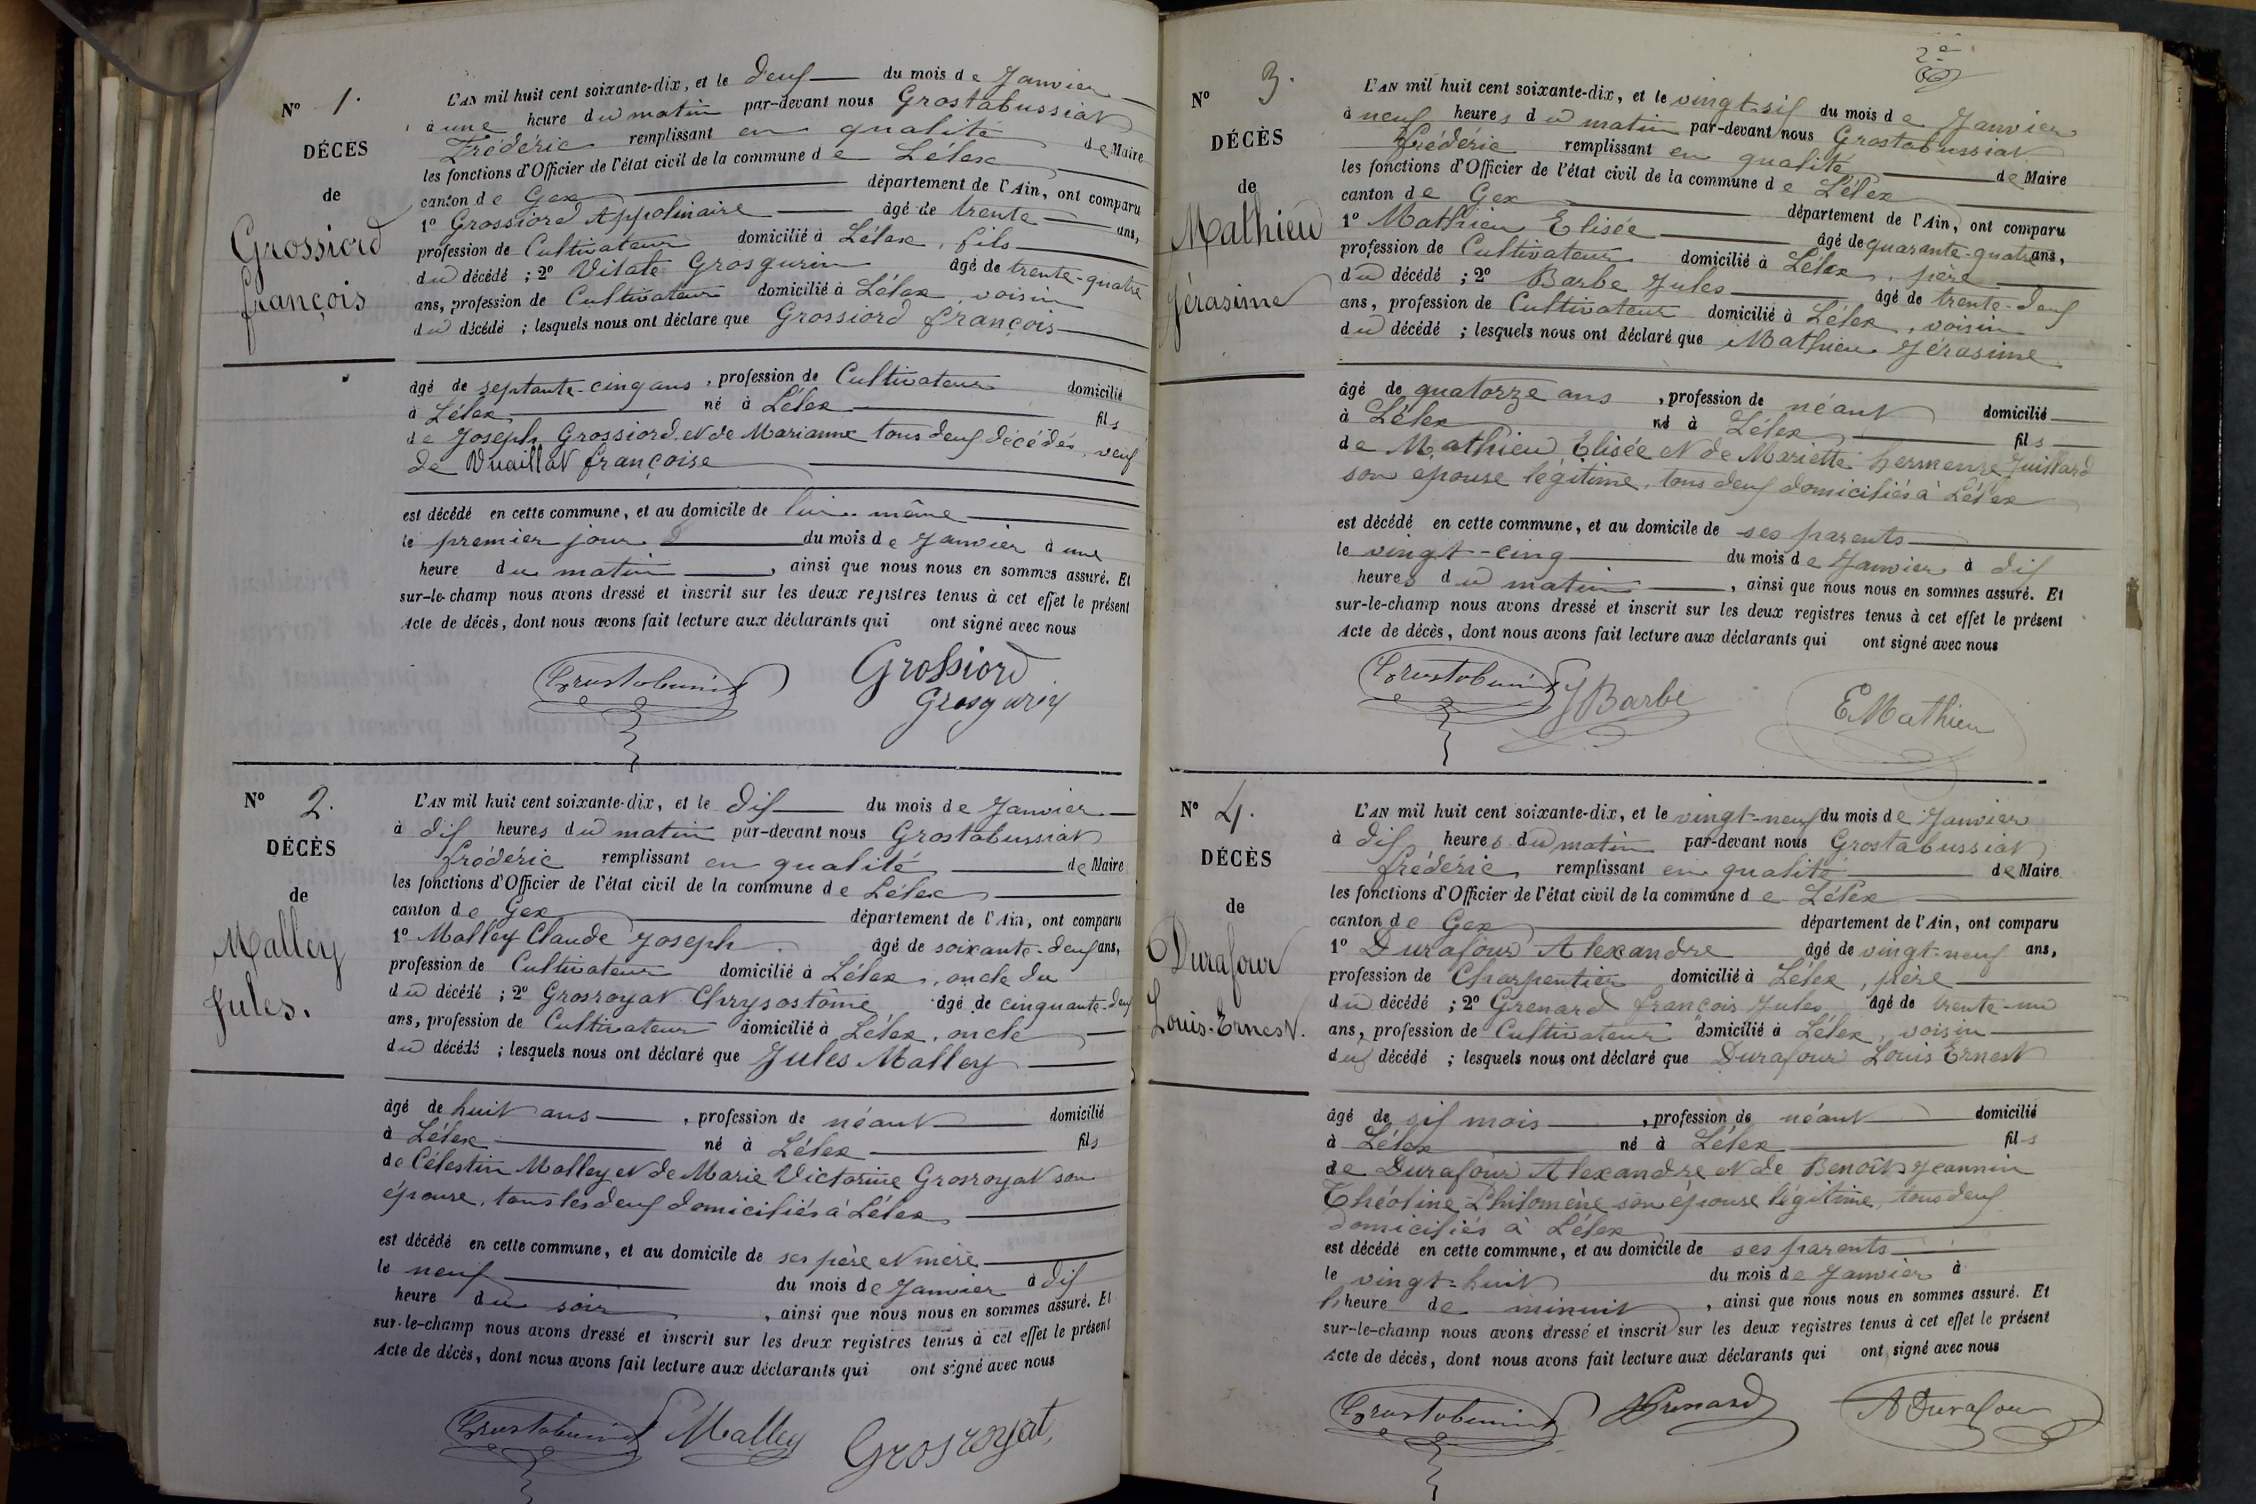 N° 1.
DÉCÈS
de
Grossiord
françois
L'AN mil huit cent soixante-dix, et le deux du mois de Janvier
à une heure du matin par-devant nous Grostabussiat
Frédéric remplissant en qualité de Maire
les fonctions d'Officier de l'état civil de la commune de Lélex
canton de Gex département de l'Ain, ont comparu
1° Grossiord Appolinaire âgé de trente ans,
profession de Cultivateur domicilié à Lélex, fils
du décédé ; 2° Vitale Grosgurin âgé de trente-quatre
ans, profession de Cultivateur domicilié à Lélex, voisin
du décédé ; lesquels nous ont déclare que Grossiord françois
âgé de septante-cinq ans, profession de Cultivateur domicilié
à Lélex né à Lélex fils
de Joseph Grossiord et de Marianne tous deux décédés, veuf
de Vuaillat françoise
est décédé en cette commune, et au domicile de lui-même
le premier jour du mois de Janvier à une
heure du matin, ainsi que nous nous en sommes assuré. Et
sur-le-champ nous avons dressé et inscrit sur les deux registres tenus à cet effet le présent
Acte de décès, dont nous avons fait lecture aux déclarants qui ont signé avec nous
Grostabussiat
Grossiord
Grosgurin
N° 2.
DÉCÈS
de
Malley
Jules.
L'AN mil huit cent soixante-dix, et le dix du mois de Janvier
à dix heures du matin par-devant nous Grostabussiat
frédéric remplissant en qualité de Maire
les fonctions d'Officier de l'état civil de la commune de Lélex
canton de Gex département de l'Ain, ont comparu
1° Malley Claude Joseph. âgé de soixante-deux ans,
profession de Cultivateur domicilié à Lélex, oncle du
du décédé ; 2° Grosroyat Chrysostôme âgé de cinquante-deux
ans, profession de Cultivateur domicilié à Lélex, oncle
du décédé ; lesquels nous ont déclaré que Jules Malley
âgé de huit ans, profession de néant domicilié
à Lélex né à Lélex fils
de Célestin Malley et de Marie Victorine Grosroyat son
épouse, tous les deux domiciliés à Lélex
est décédé en cette commune, et au domicile de ses père et mère
le neuf du mois de Janvier à dix
heure du soir, ainsi que nous nous en sommes assuré. Et
sur-le-champ nous avons dressé et inscrit sur les deux registres tenus à cet effet le présent
Acte de décès, dont nous avons fait lecture aux déclarants qui ont signé avec nous
Grostabussiat Malley Grosroyat
2e
N° 3.
DÉCÈS
de
Mathieu
Jérasime
L'AN mil huit cent soixante-dix, et le vingt-six du mois de Janvier
à neuf heures du matin par-devant nous Grostabussiat
frédéric remplissant en qualité de Maire
les fonctions d'Officier de l'état civil de la commune de Lélex
canton de Gex département de l'Ain, ont comparu
1° Mathieu Elisée âgé de quarante-quatre ans,
profession de Cultivateur domicilié à Lélex, père
du décédé ; 2° Barbe Jules âgé de trente-deux
ans, profession de Cultivateur domicilié à Lélex, voisin
du décédé ; lesquels nous ont déclaré que Mathieu Jérasime
âgé de quatorze ans, profession de néant domicilié
à Lélex né à Lélex fils
de Mathieu Elisée et de Mariette hermenze Juillard
son epouse légitime, tous deux domiciliés à Lélex
est décédé en cette commune, et au domicile de ses parents
le vingt-cinq du mois de Janvier à dix
heures du matin, ainsi que nous nous en sommes assuré. Et
sur-le-champ nous avons dressé et inscrit sur les deux registres tenus à cet effet le présent
Acte de décès, dont nous avons fait lecture aux déclarants qui ont signé avec nous
Grostabussiat J Barbe E Mathieu
N° 4.
DÉCÈS
de
Durafour
Louis-Ernest.
L'AN mil huit cent soixante-dix, et le vingt-neuf du mois de Janvier
à dix heures du matin par-devant nous Grostabussiat
frédéric remplissant en qualité de Maire
les fonctions d'Officier de l'état civil de la commune de Lélex
canton de Gex département de l'Ain, ont comparu
1° Durafour Alexandre âgé de vingt-neuf ans,
profession de Charpentier domicilié à Lélex, père
du décédé ; 2° Grenard françois Jules âgé de trente-un
ans, profession de Cultivateur domicilié à Lélex, voisin
du décédé ; lesquels nous ont déclaré que Durafour Louis Ernest
âgé de six mois, profession de néant domicilié
à Lélex né à Lélex fils
de Durafour Alexandre et de Benoît-Jeannin
Théotine Philomène son épouse légitime, tous deux
domiciliés à Lélex
est décédé en cette commune, et au domicile de ses parents
le vingt-huit du mois de Janvier à
l'heure de minuit, ainsi que nous nous en sommes assuré. Et
sur-le-champ nous avons dressé et inscrit sur les deux registres tenus à cet effet le présent
Acte de décès, dont nous avons fait lecture aux déclarants qui ont signé avec nous
Grostabussiat Grenard A Durafour